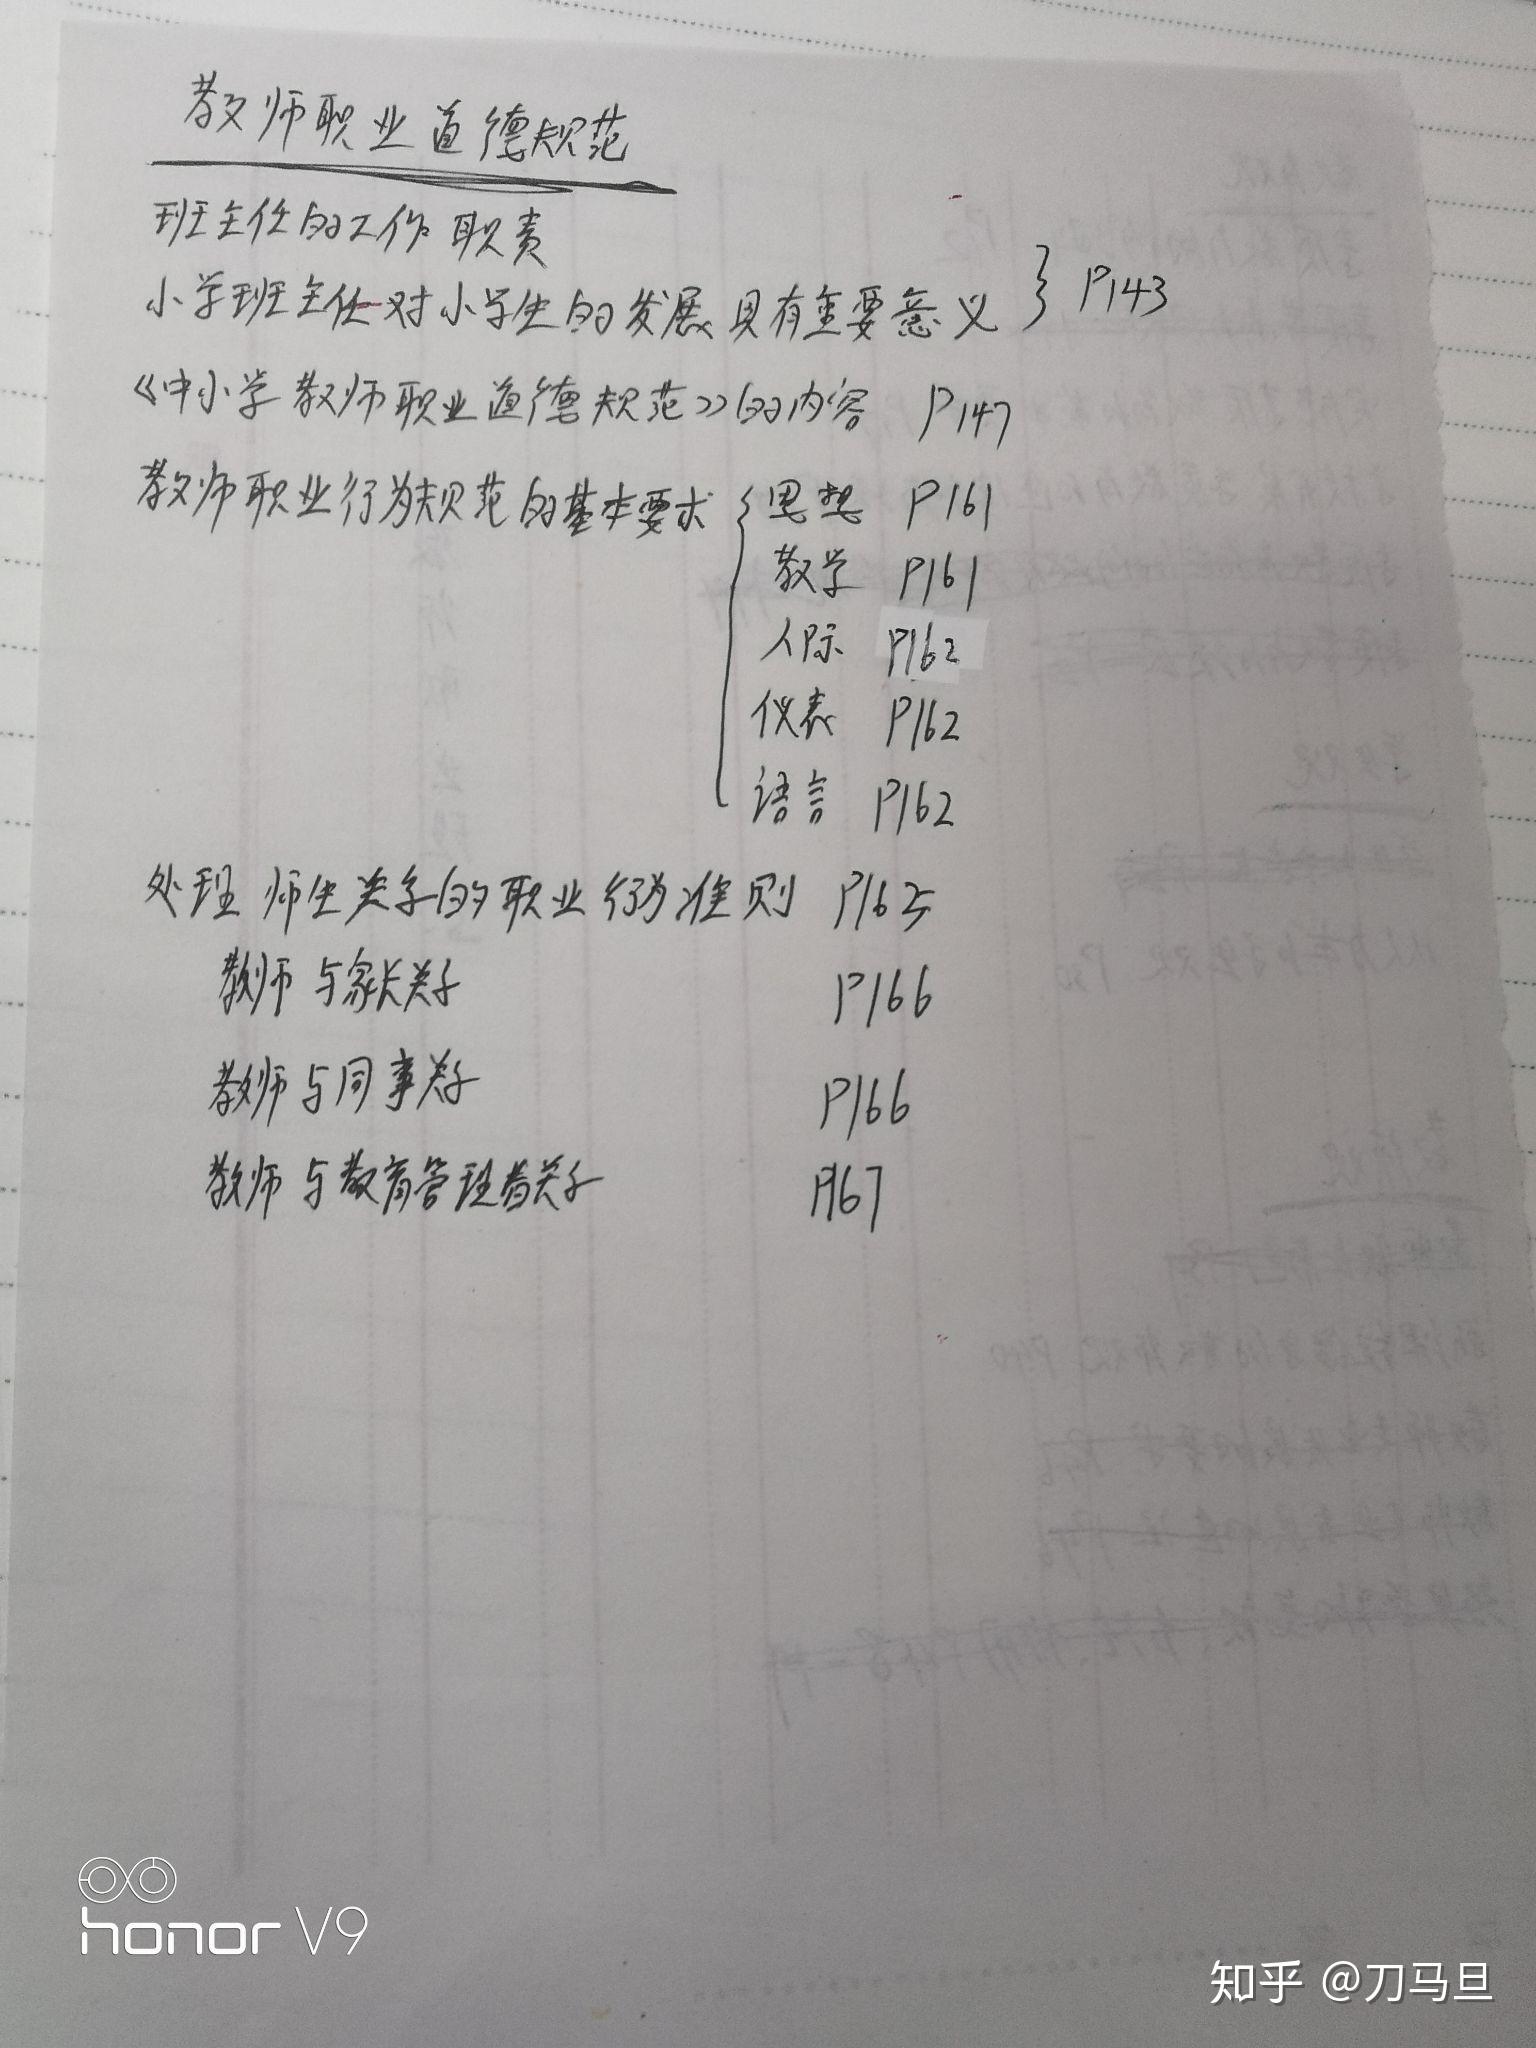 教师职业道德规范
班主任的工作职责
小学班主任对小学生的发展具有重要意义 } P143
《中小学教师职业道德规范》的内容 P147
教师职业行为规范的基本要求 { 思想 P161
教学 P161
人际 P162
仪表 P162
语言 P162
处理师生关系的职业行为准则 P165
教师与家长关系 P166
教师与同事关系 P166
教师与教育管理者关系 P167
honor V9
知乎 @刀马旦